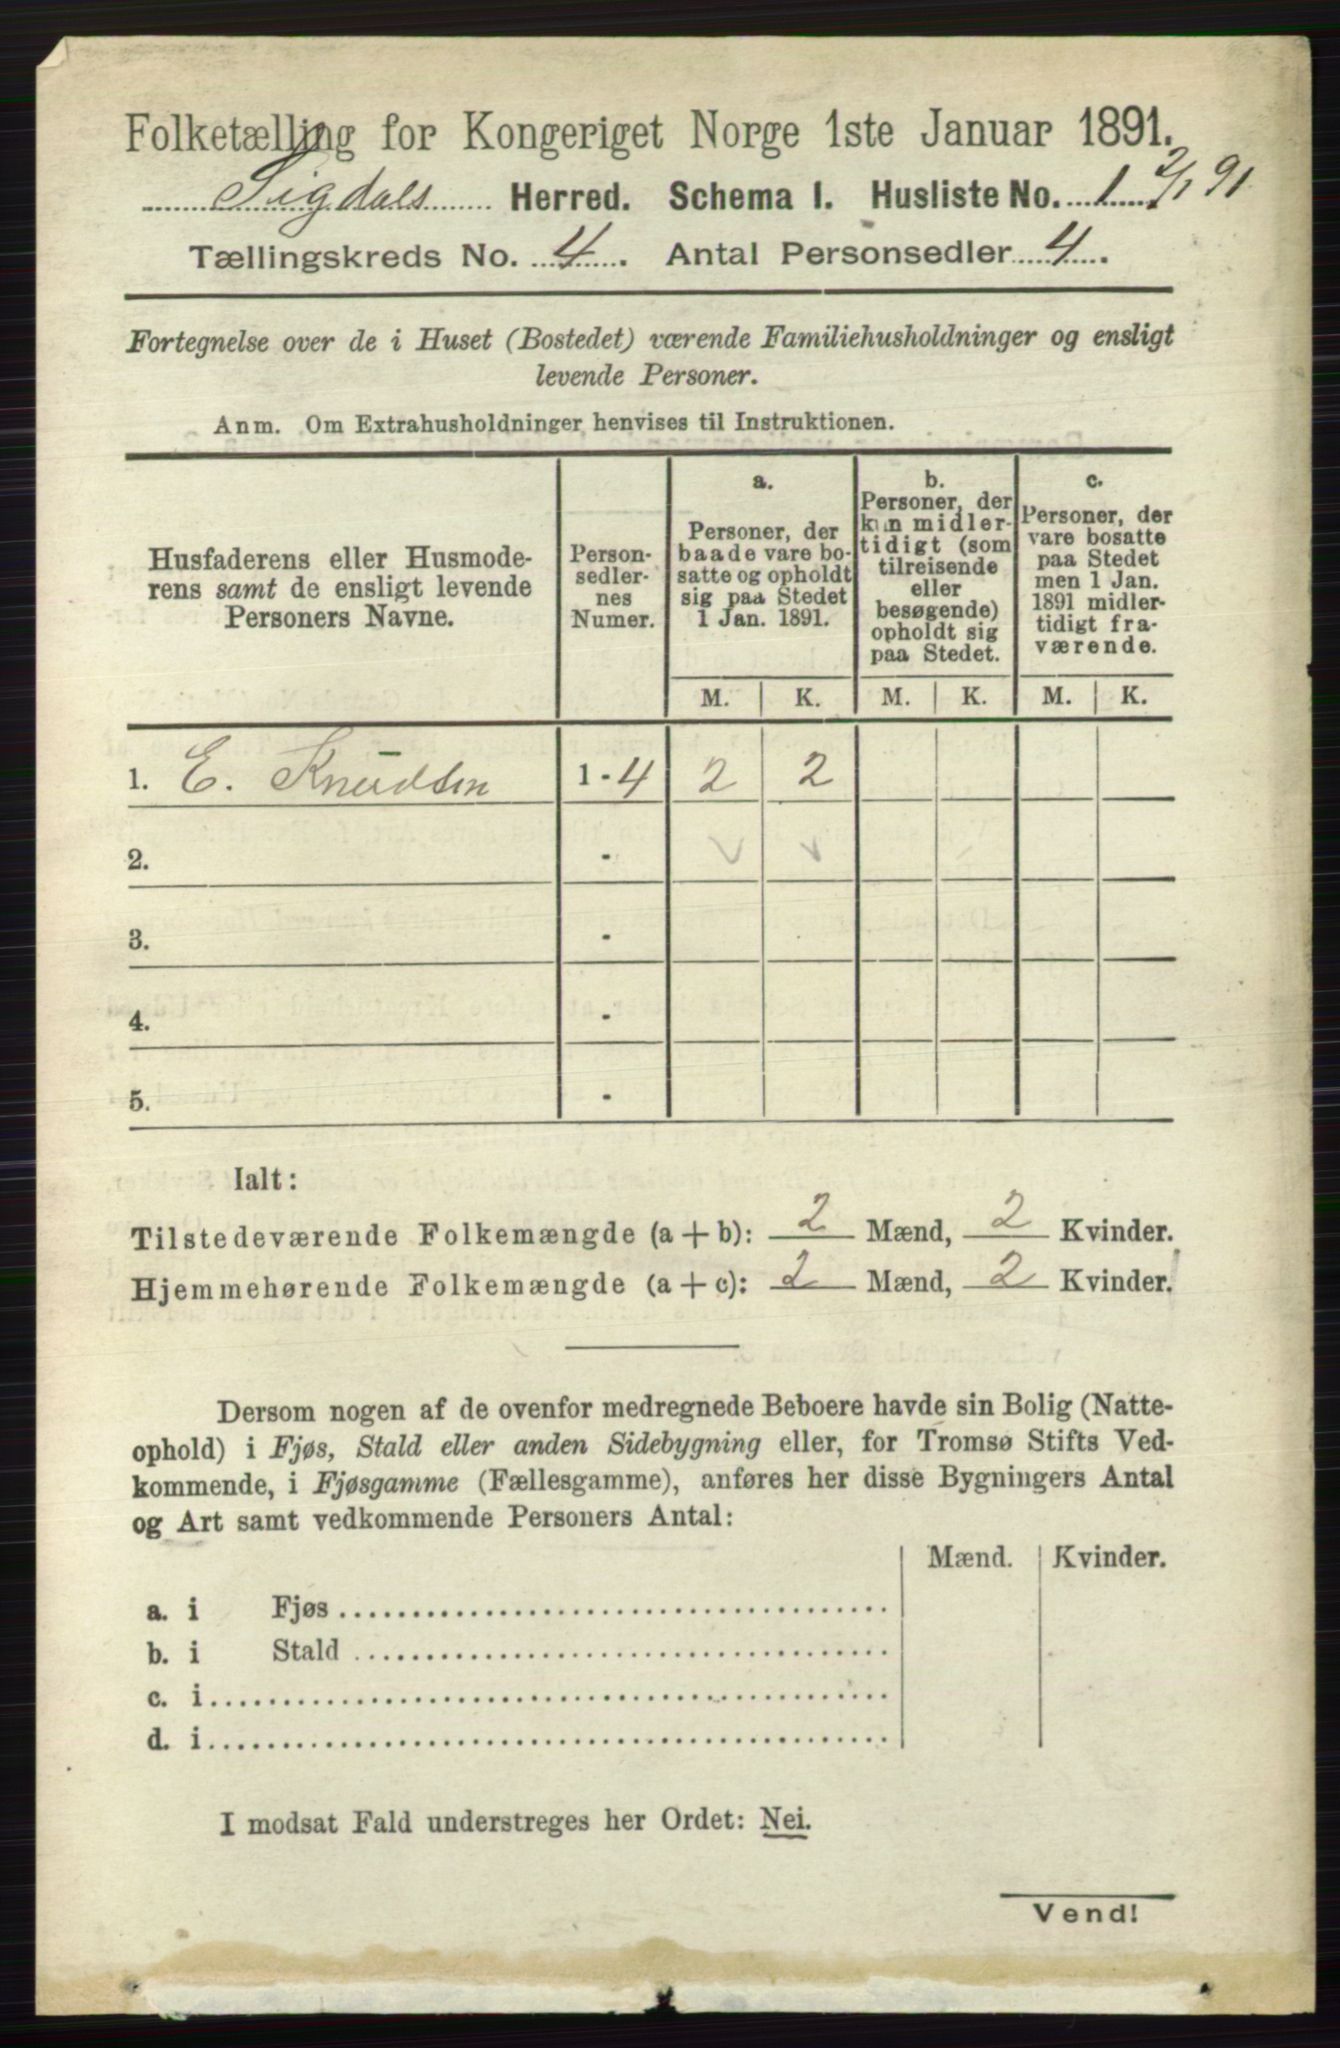 Folketælling for Kongeriget Norge 1ste Januar 1891.
Sigdals Herred. Schema I. Husliste No. 1. 2/1 91
Tællingskreds No. 4. Antal Personsedler 4.
Fortegnelse over de i Huset (Bostedet) værende Familiehusholdninger og ensligt
levende Personer.
Anm. Om Extrahusholdninger henvises til Instruktionen.
Husfaderens eller Husmode-
rens samt de ensligt levende
Personers Navne.
Person-
sedler-
nes
Numer.
a.
Personer, der
baade vare bo-
satte og opholdt
sig paa Stedet
1 Jan. 1891.
b.
Personer, der
kun midler-
tidigt (som
tilreisende
eller
besøgende)
opholdt sig
paa Stedet.
c.
Personer, der
vare bosatte
paa Stedet
men 1 Jan.
1891 midler-
tidigt fra-
værende.
M. K. M. K. M. K.
1. E. Knudsen 1 - 4 2 2
2. -
3. -
4. -
5. -
Ialt:
Tilstedeværende Folkemængde (a + b): 2 Mænd, 2 Kvinder.
Hjemmehørende Folkemængde (a + c): 2 Mænd, 2 Kvinder.
Dersom nogen af de ovenfor medregnede Beboere havde sin Bolig (Natte-
ophold) i Fjøs, Stald eller anden Sidebygning eller, for Tromsø Stifts Ved-
kommende, i Fjøsgamme (Fællesgamme), anføres her disse Bygningers Antal
og Art samt vedkommende Personers Antal:
Mænd. Kvinder.
a. i Fjøs
b. i Stald
c. i
d. i
I modsat Fald understreges her Ordet: Nei.
Vend!